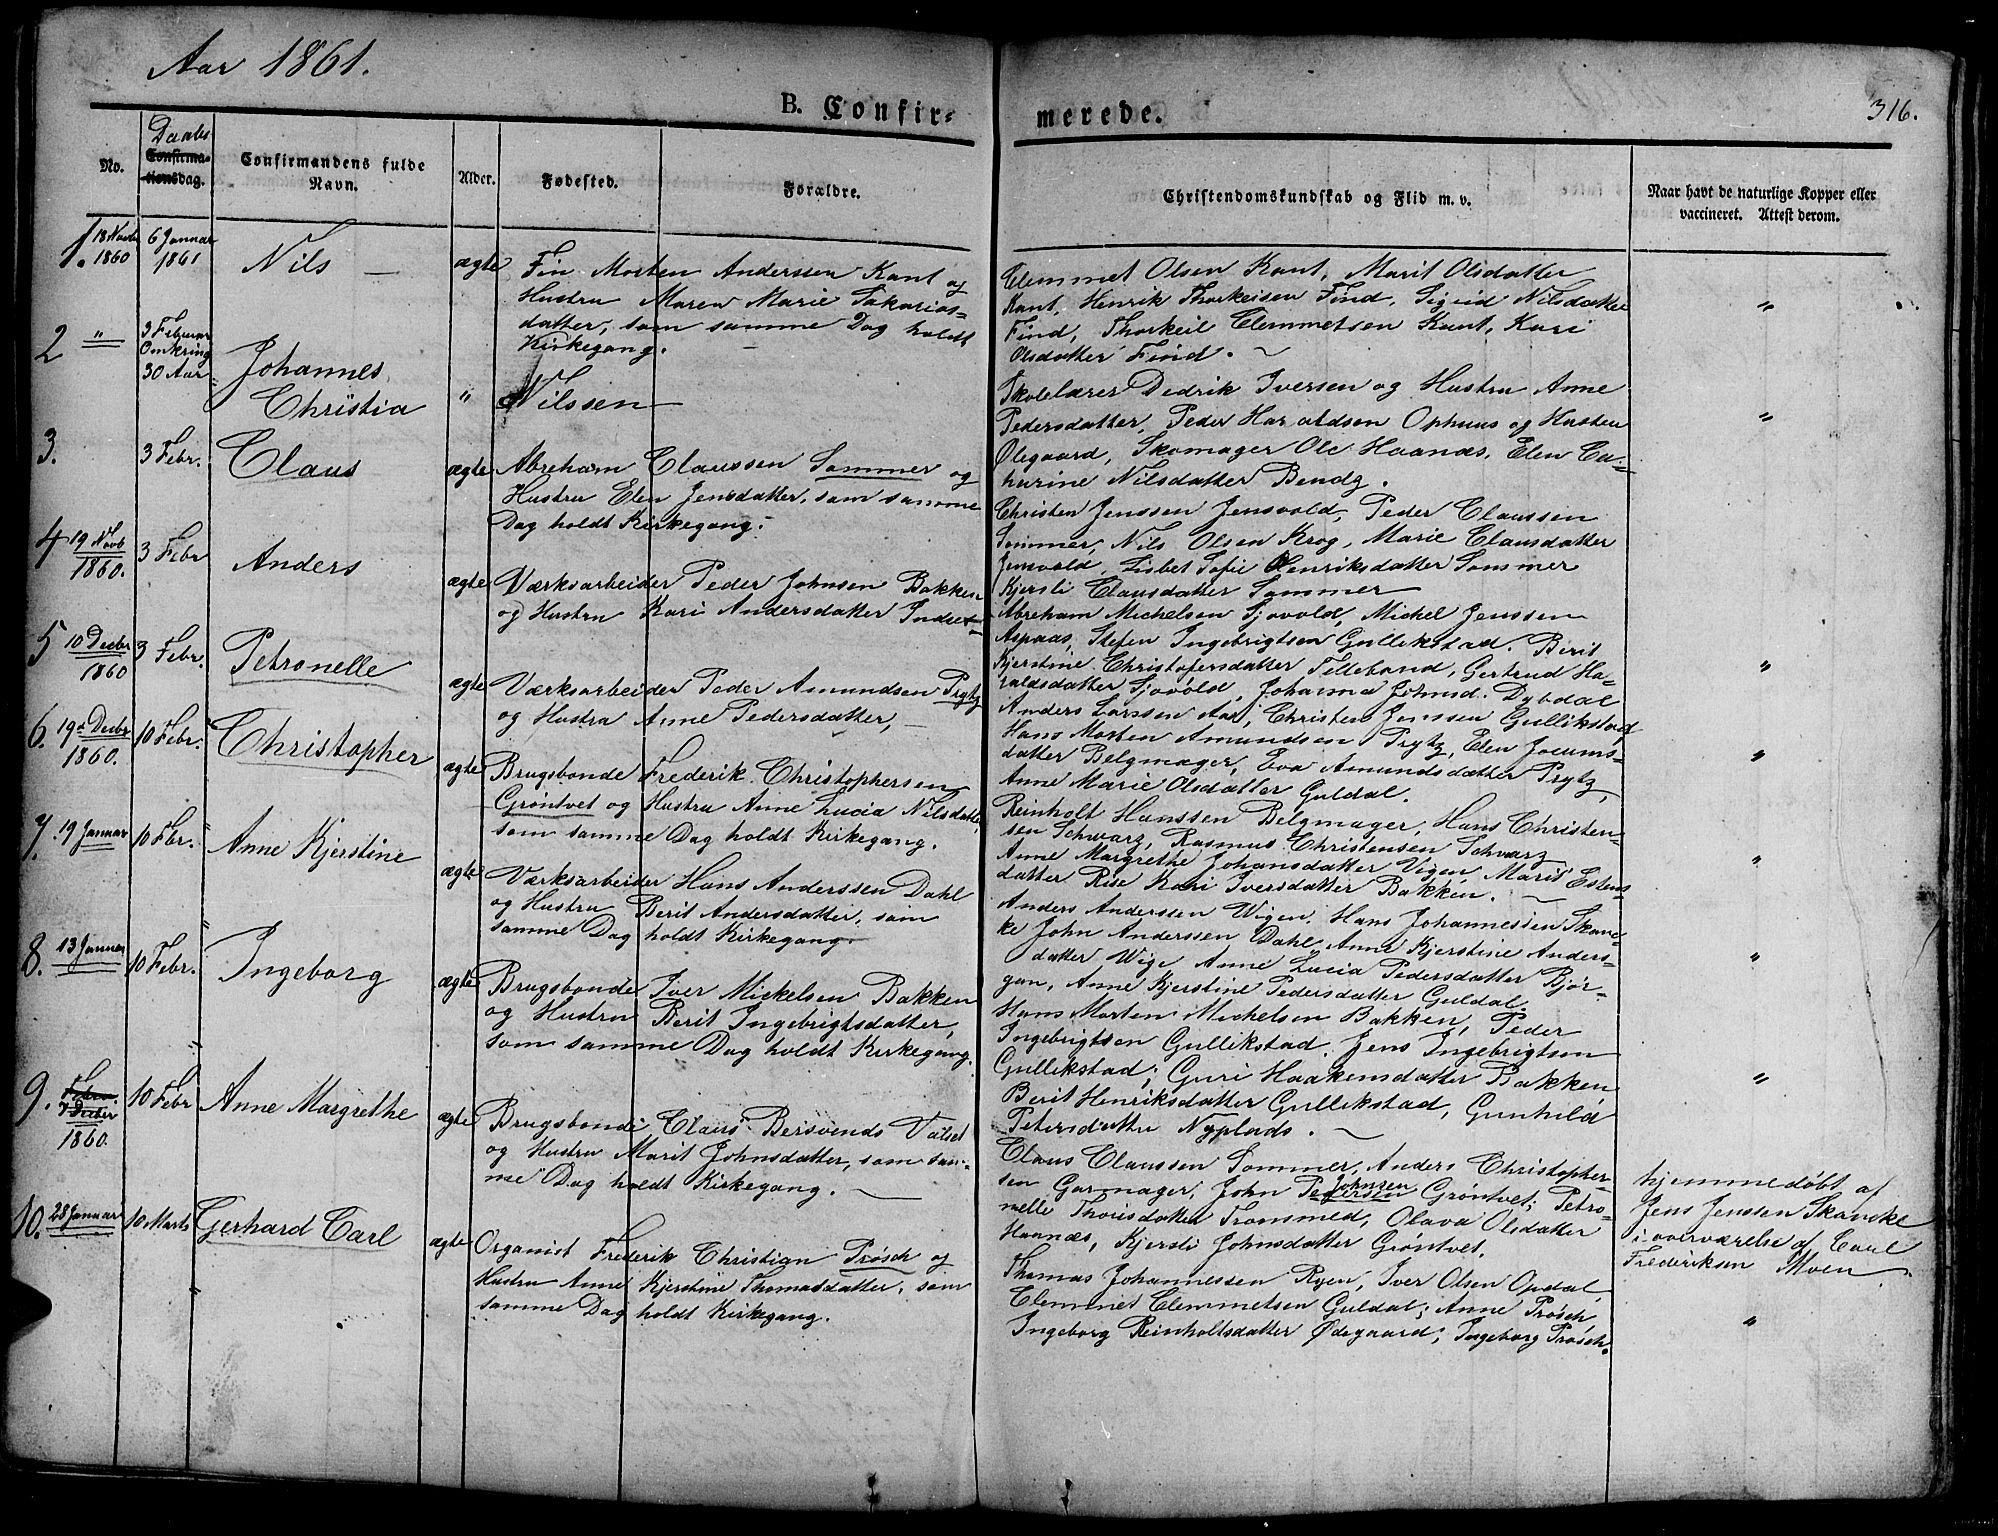 Aar 1861.
B. Confir=
merede.
316.
No.
Daabs
Confirma=
tionsdag.
Confirmandens fulde
Navn.
Alder.
Fødested.
Forældre.
Christendomskundskab og Flid m. v.
Naar havt de naturlige Kopper eller
vaccineret. Attest derom.
1. 18 Novbr
1860
6 Januar
1861
Nils
ægte
Fin Morten Anderssen Kant og
Hustru Maren Marie Sakarias=
datter, som samme Dag holdt
Kirkegang.
Clemmet Olsen Kant, Marit Olsdatter
Kant, Henrik Thorkelsen Find, Sigrid Nilsdatter
Find, Thorkeil Clemmetsen Kant, Kari
Olsdatter Find.
"
2 "
3 Februar
Omkring
30 Aar
Johannes
Christia
"
Nilssen
Skolelærer Dedrik Iversen og Hustru Anne
Pedersdatter, Peder Haraldsen Ophuus og Hustru
Olegaard, Skomager Ole Haanæs, Elen Ca=
thurine Nilsdatter Bendz.
"
3.
3 Febr.
Claus
ægte
Abreham Claussen Sommer og
Hustru Elen Jensdatter, som samme
Dag holdt Kirkegang.
Christen Jenssen Jensvold, Peder Claussen
Sommer, Nils Olsen Krog, Marie Clausdatter
Jensvold, Lisbet Sofie Henriksdatter Sommer
Kjersti Clausdatter Sommer
4 19 Novb
1860.
3 Febr
Anders
ægte
Værksarbeider Peder Johnsen Bakken
og Hustru Kari Andersdatter Indset
Abreham Michelsen Sjovold, Michel Jenssen
Aspaas, Stefen Ingebrigtsen Gullikstad. Berit
Kjerstine Christofersdatter Tillebond, Gertrud Ha=
raldsdatter Sjovold, Johanna Johnsd. Dybdal
"
5 10 Decbr
1860
3 Febr.
Petronelle
ægte
Værksarbeider Peder Amundsen Prytz
og Hustru Anne Pedersdatter,
Anders Larssen Aar, Christen Jenssen Gullikstad
Hans Morten Amundsen Prytz, Elen Jocums=
datter Belgmager, Eva Amundsdatter Prytz,
Anne Marie Olsdatter Guldal.
"
6. 19de Decbr
1860.
10 Febr.
Christopher
ægte
Brugsbonde Frederik Christophersen
Grøntvet og Hustru Anne Lucia Nilsdatter,
som samme Dag holdt Kirkegang.
Reinholt Hanssen Belgmager, Hans Christen=
sen Schwarz, Rasmus Christensen Schwarz
Anne Margrethe Johansdatter Vigen Marit Estens=
datter Rise Kari Iversdatter Bakken.
"
7. 19 Januar
10 Febr.
Anne Kjerstine
ægte
Værksarbeider Hans Anderssen Dahl
og Hustru Berit Andersdatter, som
samme Dag holdt Kirkegang.
Anders Anderssen Wigen. Hans Johannessen Skanc=
ke John Anderssen Dahl, Anne Kjerstine Anders=
datter Wige Anne Lucia Pedersdatter Bjør=
gan, Anne Kjerstine Pedersdatter Guldal
"
8. 13 Januar
10 Febr.
Ingeborg
ægte
Brugsbonde Iver Mickelsen Bakken
og Hustru Berit Ingebrigtsdatter,
som samme Dag holdt Kirkegang.
Hans Morten Michelsen Bakken, Peder
Ingebrigtsen Gullikstad. Jens Ingebrigtsen
Gullikstad; Guri Haakensdatter Bakken
Berit Henriksdatter Gullikstad, Gunhild
Petersdatter Nyplads.
"
9. Febr.
7 Decbr
1860.
10 Febr
Anne Margrethe
ægte
Brugsbonde Claus Bersvends Valset
og Hustru Marit Johnsdatter, som sam=
me Dag holdt Kirkegang.
Claus Claussen Sommer, Anders Christopher=
sen Garmager, John Pedersen Johnsen Grøntvet; Petro=
nelle Thorisdatter Tromsmed, Olava Olsdatter
Haanæs, Kjersti Johnsdatter Grøntvet.
hjemmedøbt af
Jens Jenssen Skancke
i overværelse af Carl
Frederiksen Moen.
10. 28 Januar
10 Marts
Gerhard Carl
ægte
Organist Frederik Christian Prøsch og
Hustru Anne Kjerstine Thomasdatter, som
samme Dag holdt Kirkegang.
Thomas Johannessen Ryen, Iver Olsen Opdal,
Clemmet Clemmetsen Guldal; Anne Prøsch,
Ingeborg Reinholtsdatter Ødegaard; Ingeborg Prøsch.
"